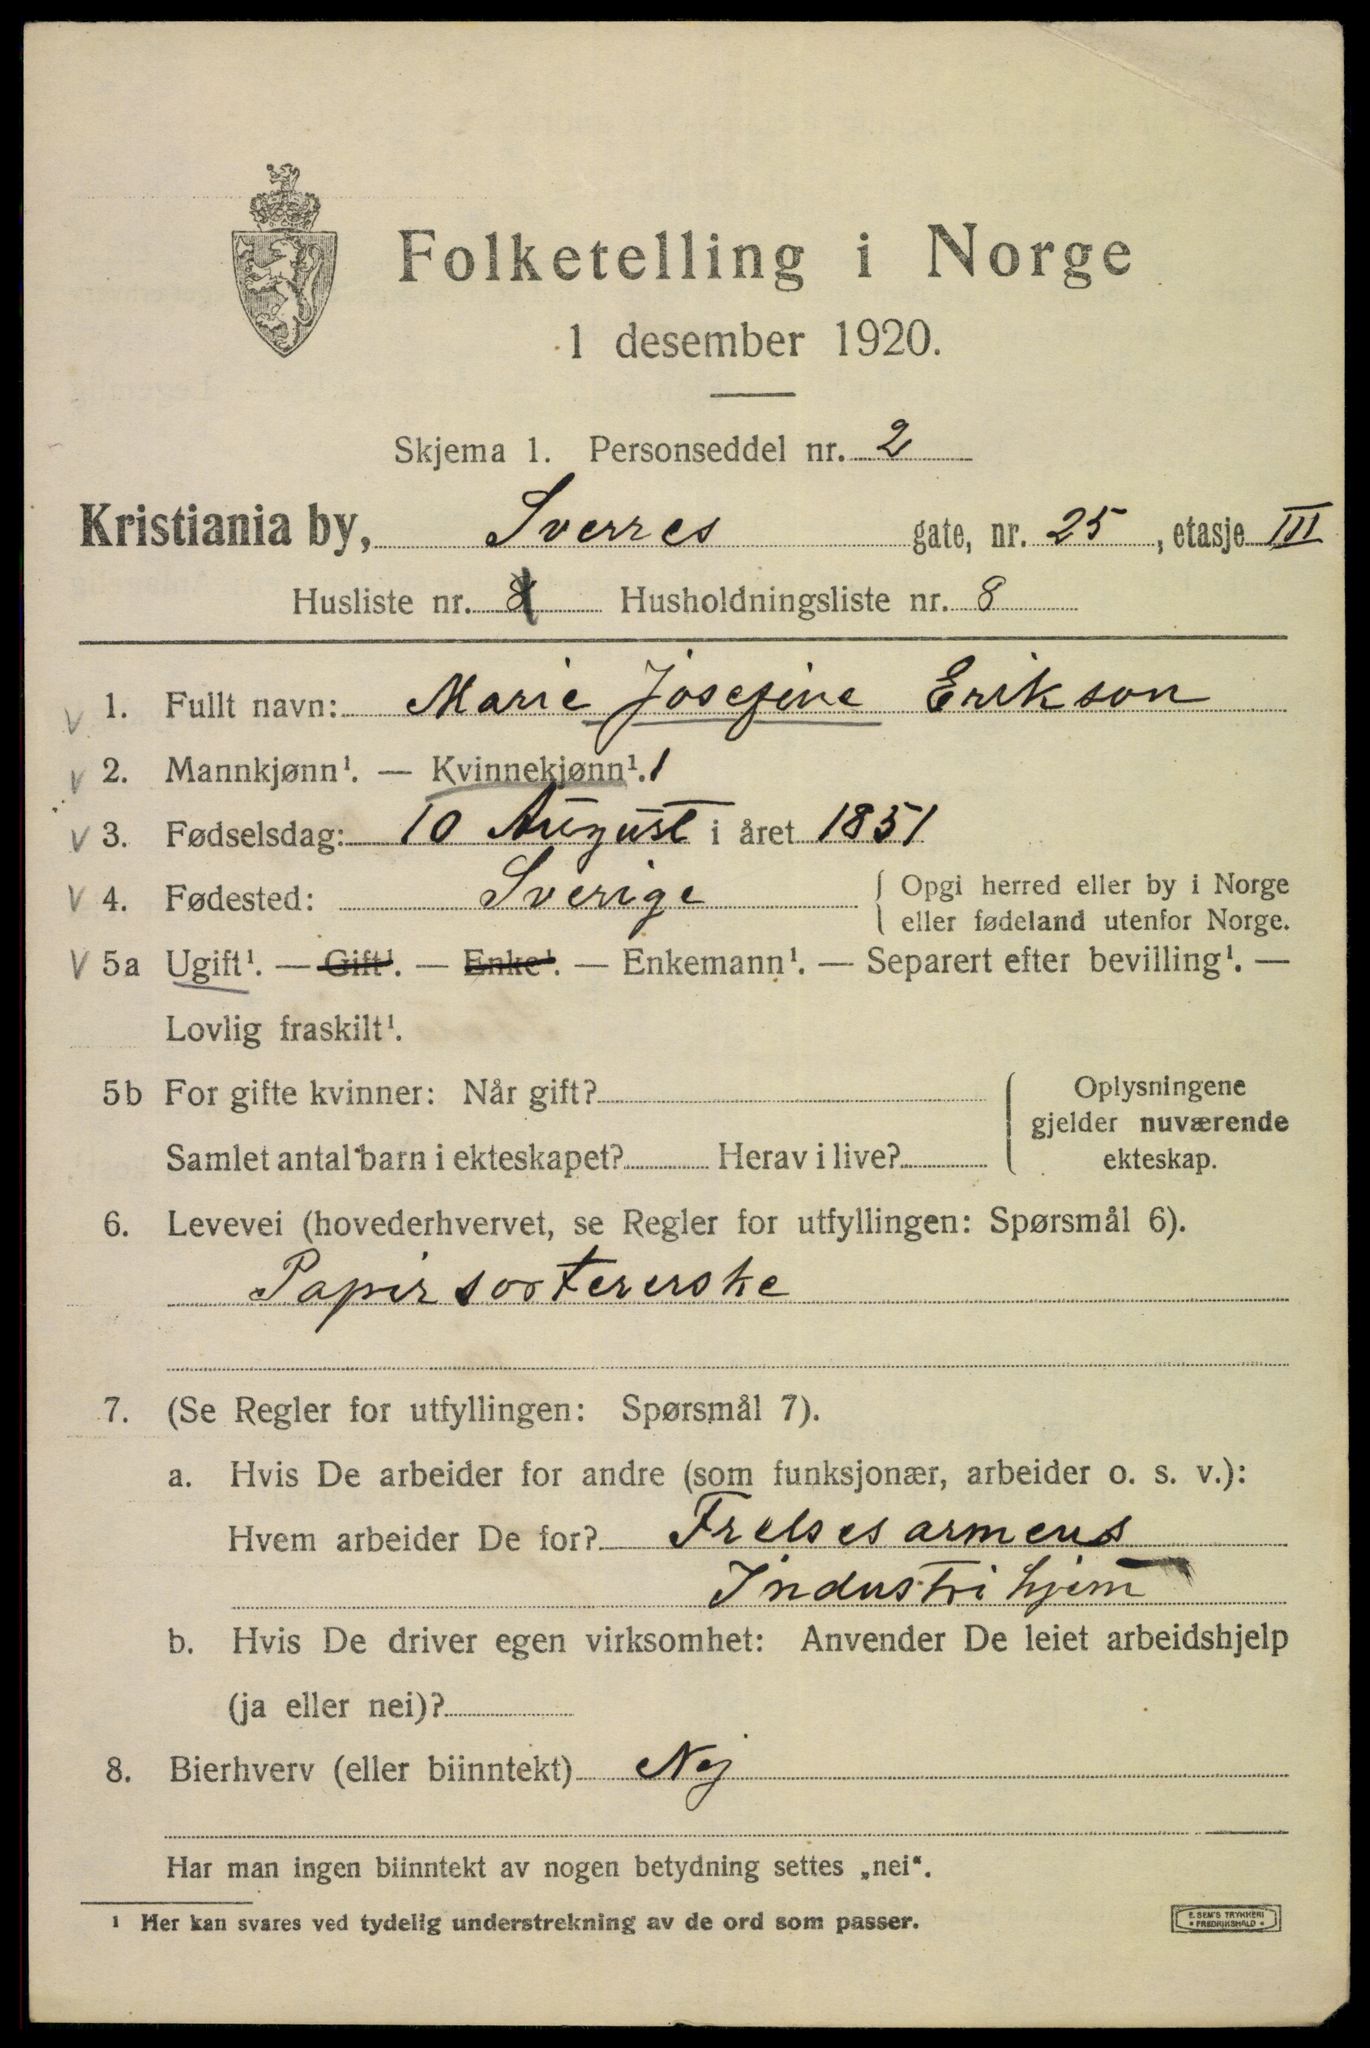 Folketelling i Norge
1 desember 1920.
Skjema 1. Personseddel nr. 2
Kristiania by, Sverres gate, nr. 25, etasje III
Husliste nr. Husholdningsliste nr. 8
V 1. Fullt navn: Marie Josefine Erikson
V 2. Mannkjønn¹. — Kvinnekjønn¹. 1
V 3. Fødselsdag: 10 August i året 1851
V 4. Fødested: Sverige { Opgi herred eller by i Norge
eller fødeland utenfor Norge.
V 5a Ugift¹. — Gift¹. — Enke¹. — Enkemann¹. — Separert efter bevilling¹. —
Lovlig fraskilt¹.
5b For gifte kvinner: Når gift? { Oplysningene
gjelder nuværende
Samlet antal barn i ekteskapet? Herav i live? ekteskap.
6. Levevei (hovederhvervet, se Regler for utfyllingen: Spørsmål 6).
Papirsortererske
7. (Se Regler for utfyllingen: Spørsmål 7).
a. Hvis De arbeider for andre (som funksjonær, arbeider o. s. v.):
Hvem arbeider De for? Frelsesarmens
Industrihjem
b. Hvis De driver egen virksomhet: Anvender De leiet arbeidshjelp
(ja eller nei)?
8. Bierhverv (eller biinntekt) Nej
Har man ingen biinntekt av nogen betydning settes „nei“.
¹ Her kan svares ved tydelig understrekning av de ord som passer.
E. SEM'S TRYKKERI
• FREDRIKSHALD •